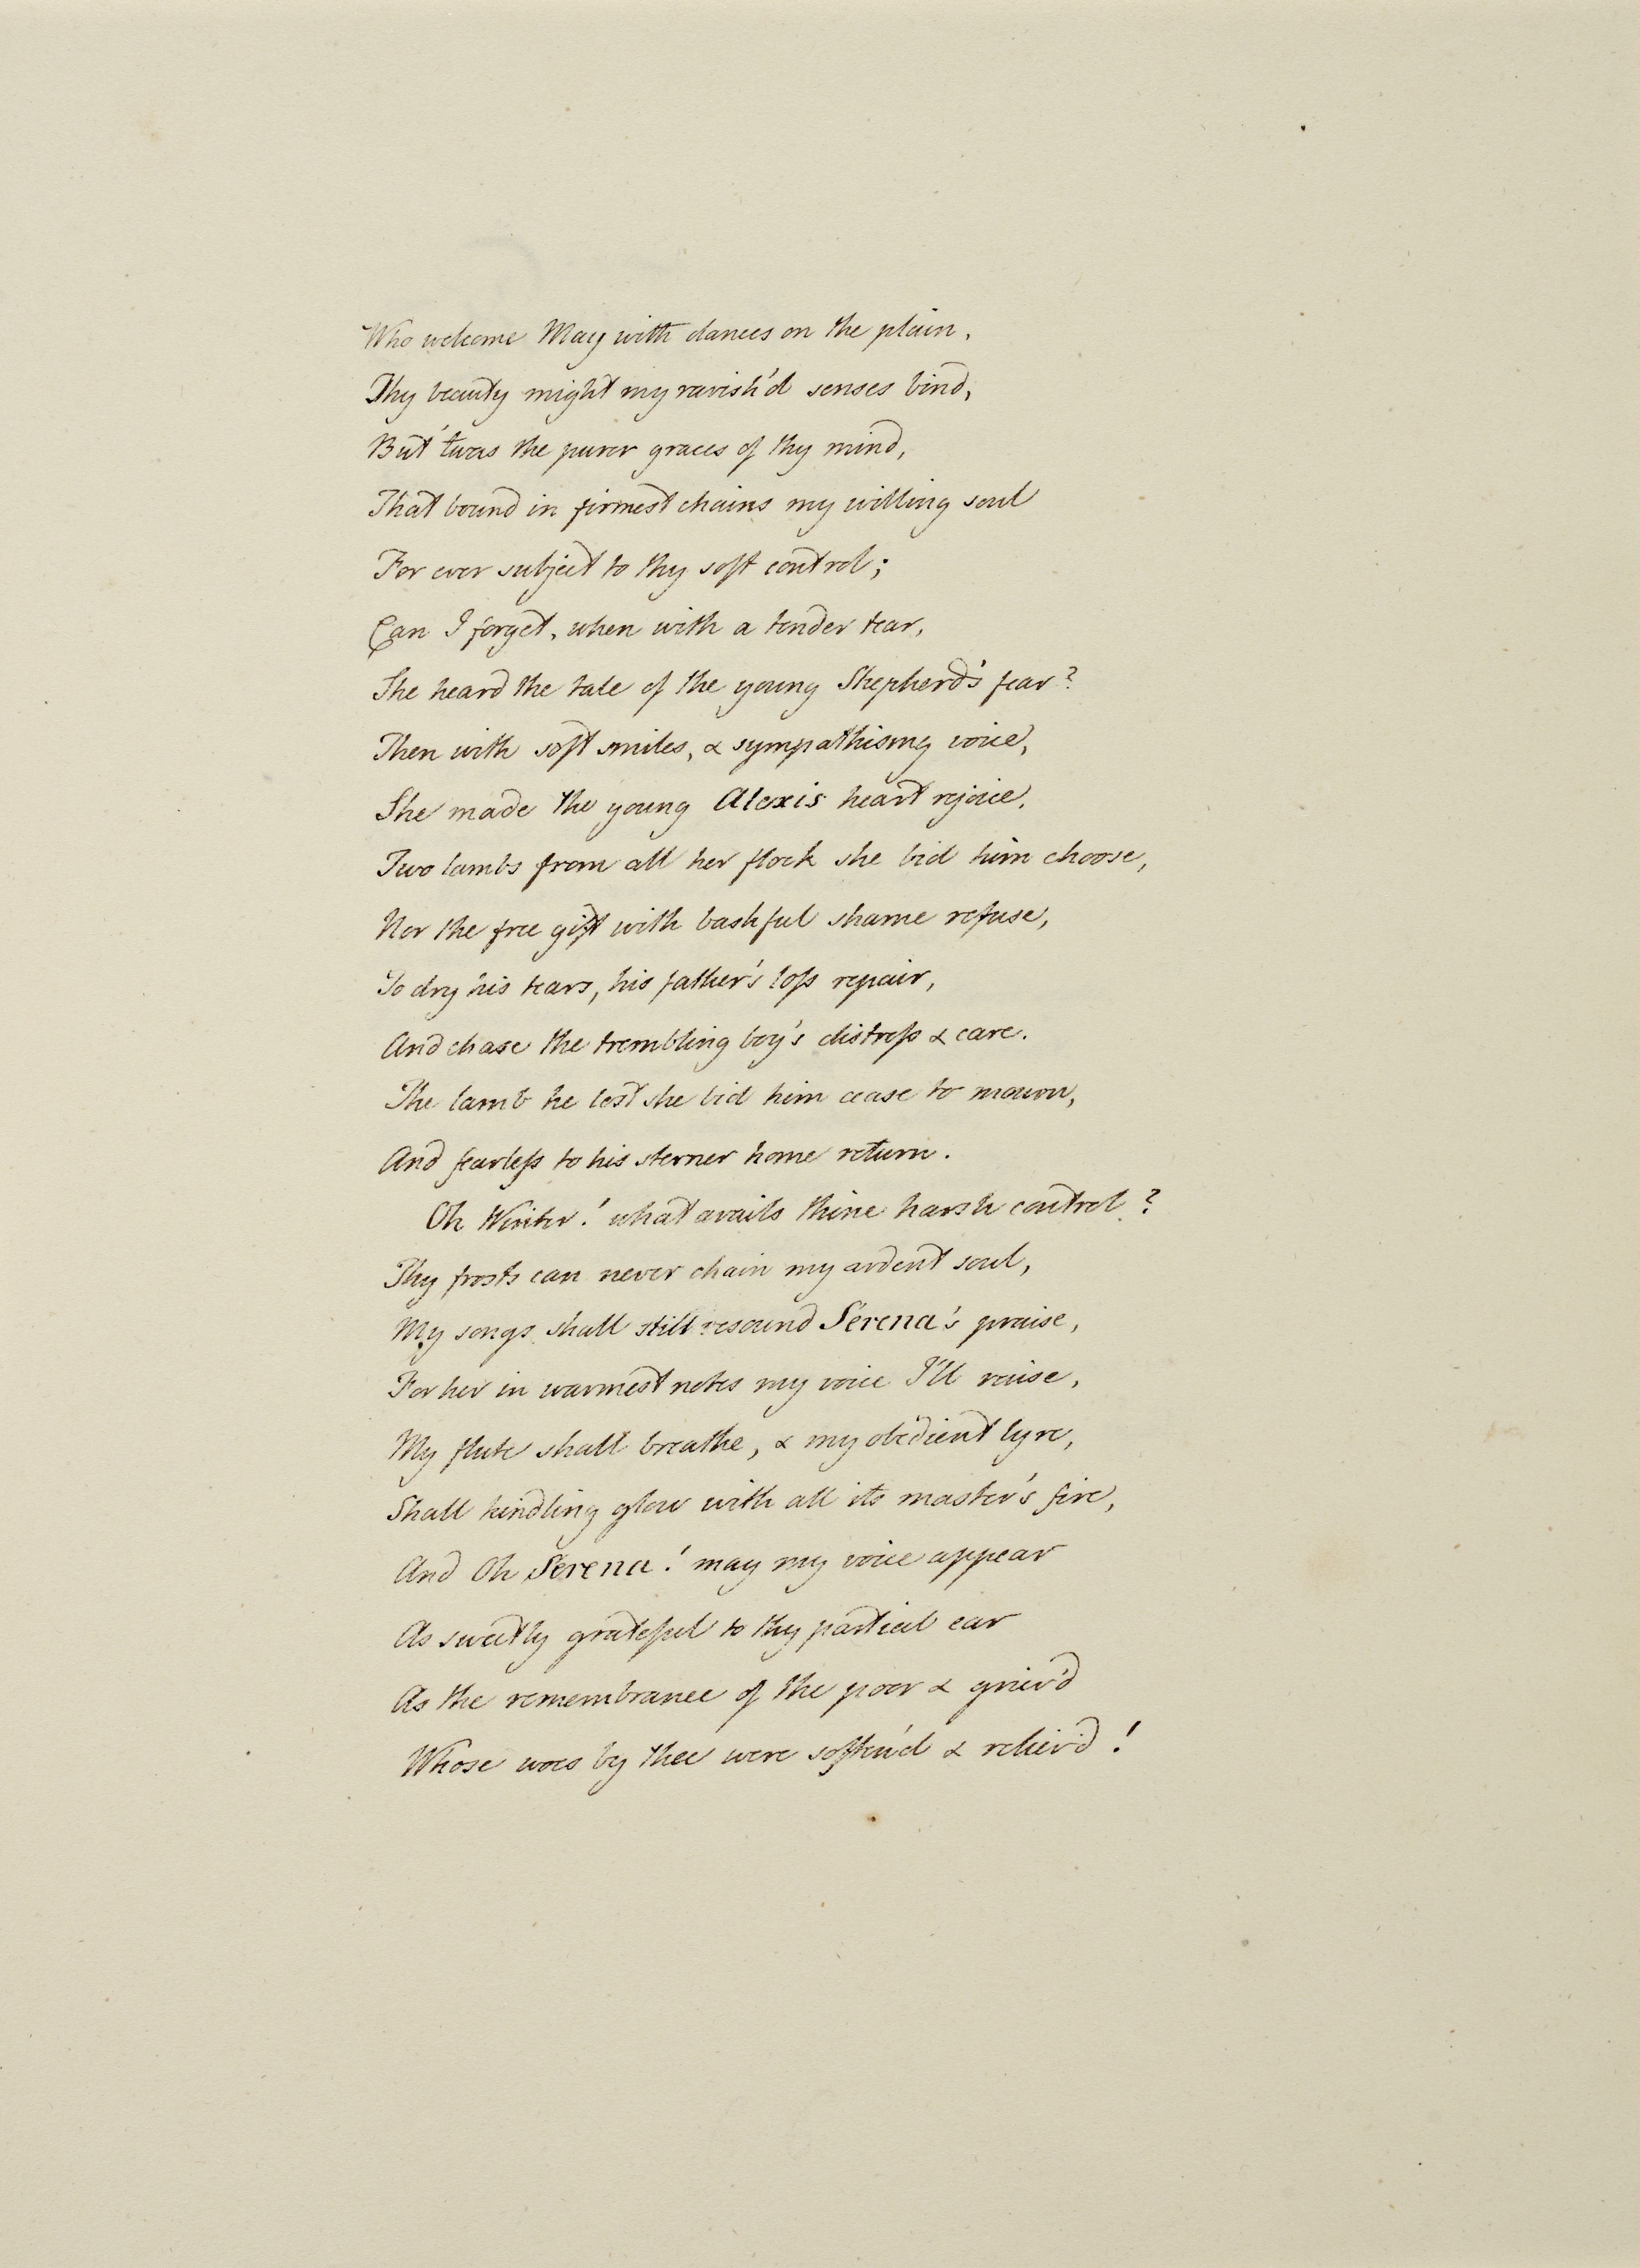 Who welcome May with dances on the plain,
Thy beauty might my ravish'd senses bind,
But 'twas the purer graces of thy mind,
That bound in firmest chains my willing soul
For ever subject to thy soft control;
Can I forget, when with a tender tear,
She heard the tale of the young Shepherd's fear?
Then with soft smiles, & sympathising voice,
She made the young Alexis heart rejoice.
Two lambs from all her flock she bid him choose,
Nor the free gift with bashful shame refuse,
To dry his tears, his father's loſs repair,
And chase the trembling boy's distreſs & care.
The lamb he lost she bid him cease to mourn,
And fearleſs to his sterner home return.
Oh Winter! what avails thine harsh control?
Thy frosts can never chain my ardent soul,
My songs shall still resound Serena's praise,
For her in warmest notes my voice I'll raise,
My flute shall breathe, & my obedient lyre,
Shall kindling glow with all its master's fire,
And Oh Serena! may my voice appear
As sweetly grateful to thy partial ear
As the remembrance of the poor & griev'd
Whose woes by thee were soften'd & reliev'd!